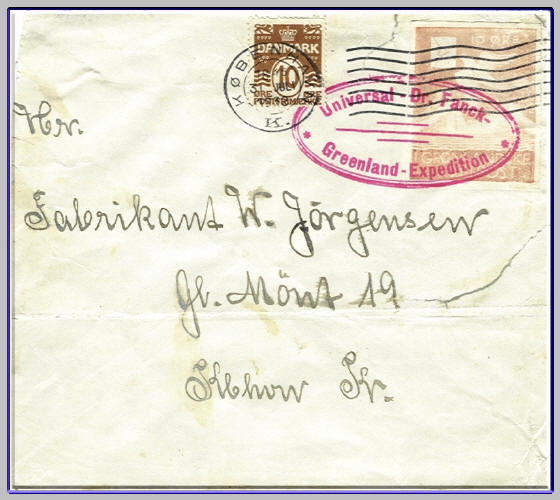 DANMARK
10
ØRE ØRE
KØBE
K.
10 ØRE
Universal - Dr. Fanck-
* *
Greenland - Expedition
Hr.
Fabrikant W. Jörgensen
Gl. Mönt 19
Kbhvn K.